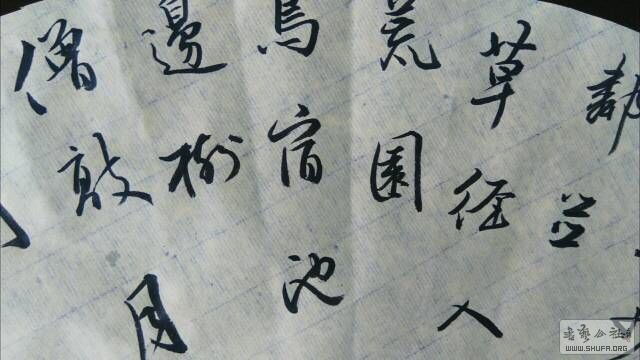 並
草徑入
荒園
鳥宿池
邊樹
僧敲月
书艺公社
WWW.SHUFA.ORG